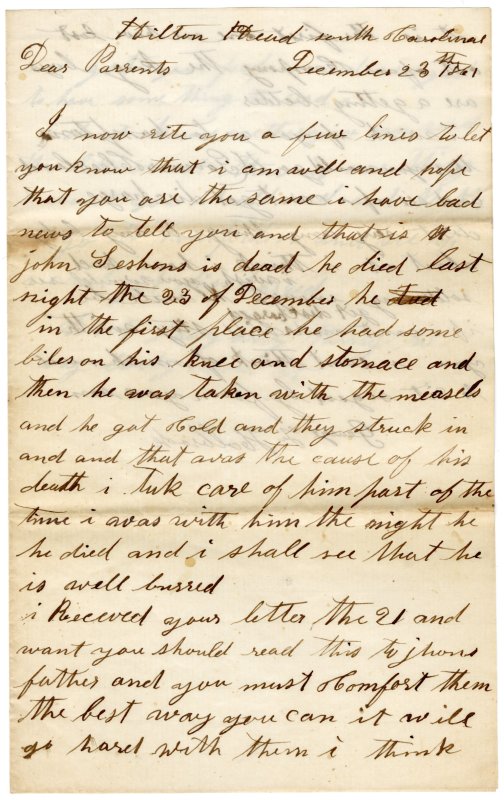 Hilton Head south Carolina
Dear Parrents December 23th 1861
I now rite you a few lines to let
you know that i am well and hope
that you are the same i have bad
news to tell you and that is
john is dead he died last
night the 23 of December he
in the first place he had some
biles on his knee and stomace and
then he was taken with the measels
and he got Cold and they struck in
and and that was the cause of his
death i tuk care of him part of the
time i was with him the night he
he died and i shall see that he
is well burred
i Receved your letter the 21 and
want you should read this to jhons
father and you must Comfort them
the best way you can it will
go hard with them i think